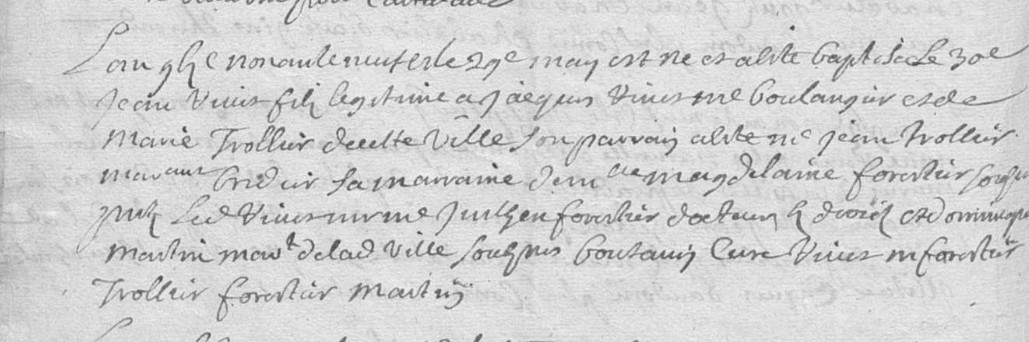 Lan 16c nonante neuf et le 29e may est ne et a este baptise le 30e
jean Vivis filz legitime a jaques Vivis me boulangier et de
marie Trollier de cette Ville son parrain a este me jean Trollier
marant bridier sa marraine demlle magdelaine forestier soubz
led Vivis forestier docteur droict et dominique
martin mart de lad Ville soubznes boutauy Cure Vivis m forestier
Trollier forestier martin